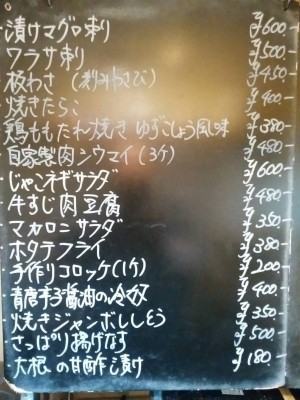 ・漬けマグロ刺 ¥600-
・ワラサ刺 ¥500-
・板わさ ¥450-
・焼きたらこ ¥400-
・鶏ももたれ焼き ゆずこしょう風味 ¥380-
・自家製肉シウマイ(3ケ) ¥480-
・じゃこネギサラダ ¥600-
・牛すじ肉豆腐 ¥480-
・マカロニサラダ ¥350-
・ホタテフライ ¥380-
・手作りコロッケ(1ケ) ¥200-
・青唐辛子醤油の冷奴 ¥400-
・焼きジャンボししとう ¥350-
・さっぱり揚げなす ¥500-
・大根の甘酢漬け ¥180-